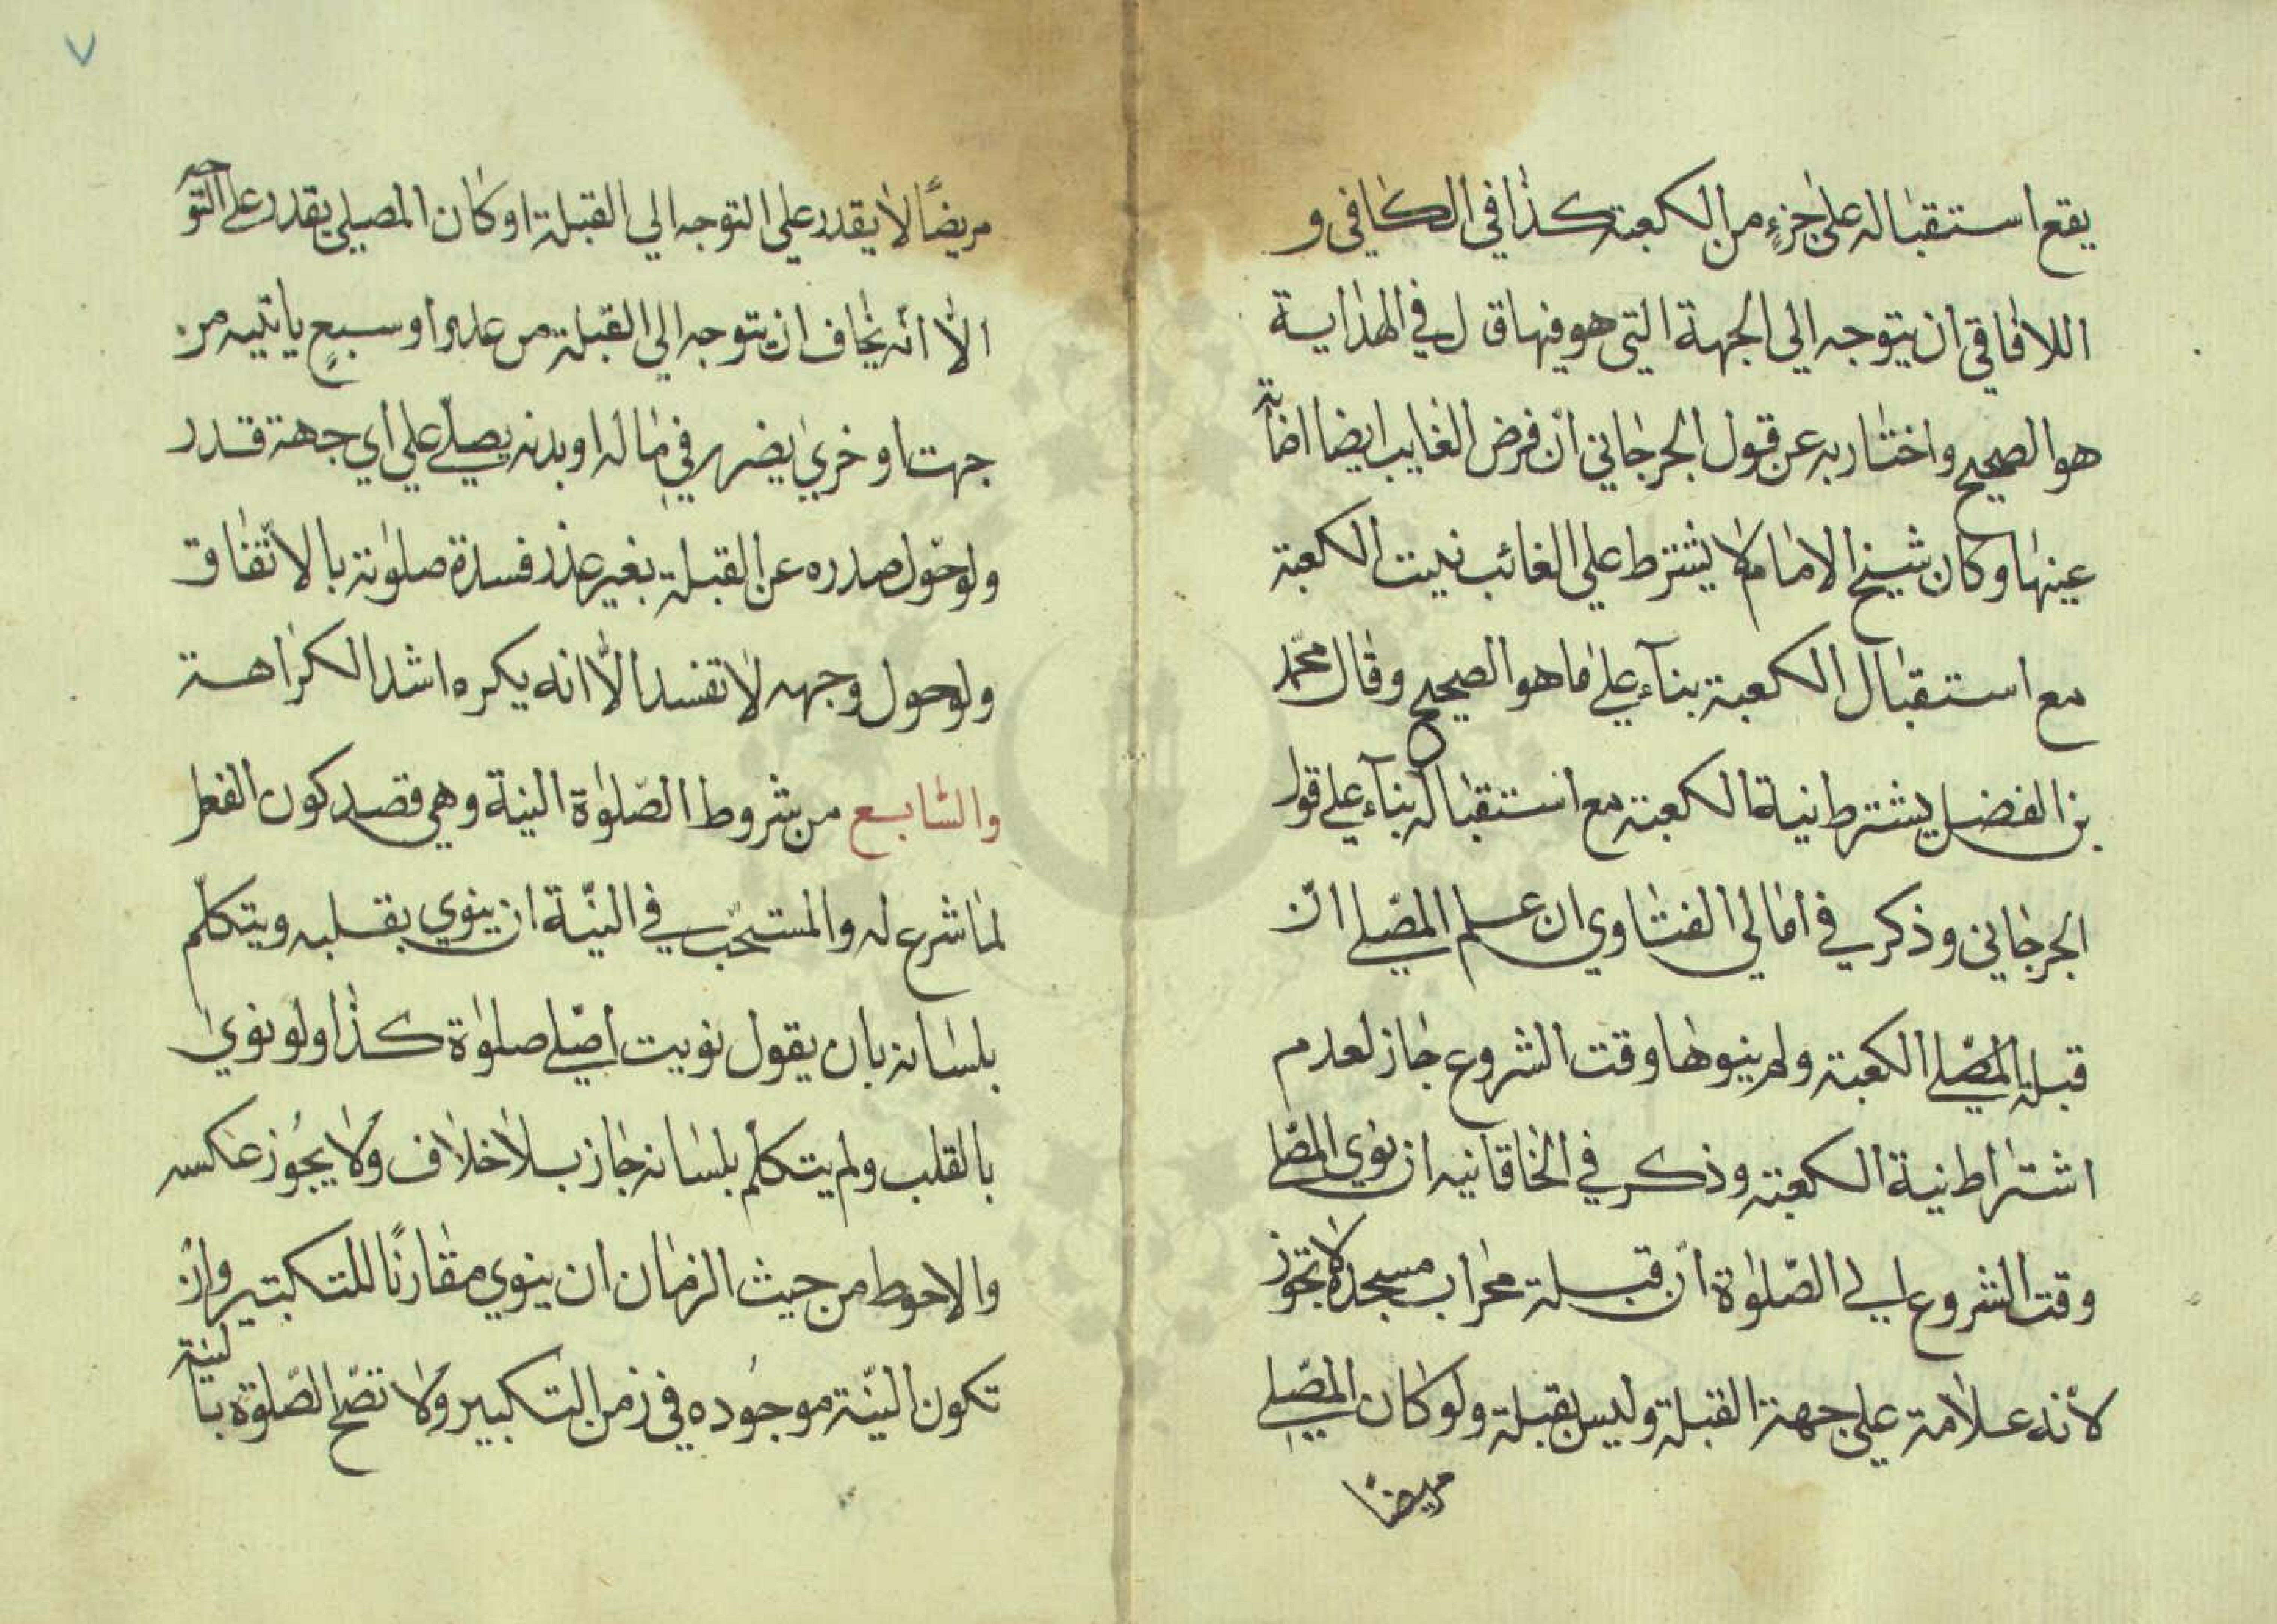 يقع استقباله على جزءٍ من الكعبة كذا في الكافي و
اللافاقي ان يتوجه الى الجهة التى هو فيها قال في الهذاية
هو الصحيح واختار به عن قول الجرجاني انّ فرض الغايب ايضا اضابة
عينها وكان شيخ الامام لا يشترط على الغائب نيت الكعبة
مع استقبال الكعبة بنآء على ما هو الصحيح وقال محمّد
بن الفضل يشترط نية الكعبة مع استقباله بنآء على قول
الجرجاني وذكر في امالي الفتاوي ان علم المصّلي انّ
قبلة المصّلي الكعبة ولم ينيوها وقت الشروع جاز لعدم
اشتراط نية الكعبة وذكر في الخاقانيه ان نوى المصّلي
وقت الشروع الي الصّلوٰة انّ قبلة محراب مسجده لا تجوز
لأنه علامة على جهة القبلة وليس بقبلة ولو كان المصّلي
مريضاً
٧
مريضًا لا يقدر على التوجه الي القبلة او كان المصلي يقدر على التوجه
الّا انّه يخاف ان يتوجه الى القبلة من عدو او سبعٍ يا تييه من
جهت اوخري يضره في ماله او بدنه يصلّي على اي جهة قدر
ولو حوّل صدره عن القبلة بغير عذر فسدة صلوٰته بالاتّفاق
ولو حول وجهه لا تفسد الّا انه يكره اشد الكراهة
والسّابع من شروط الصّلوٰة النية وهي قصد كون الفعل
لما شرع له والمستحّب في النيّة ان ينوي بقلبه ويتكلّم
بلسانه بان يقول نويت اصّلي صلوٰة كذا ولو نوىٰ
بالقلب ولم يتكلّم بلسانه جاز بلا خلاف ولا يجُوز عكسه
والاحوط من حيث الزمان ان ينوي مقارنًا للتكبتير وانْ
تكون النيّة موجُوده في زمن التكبير ولا تصّح الصّلوة بالنية